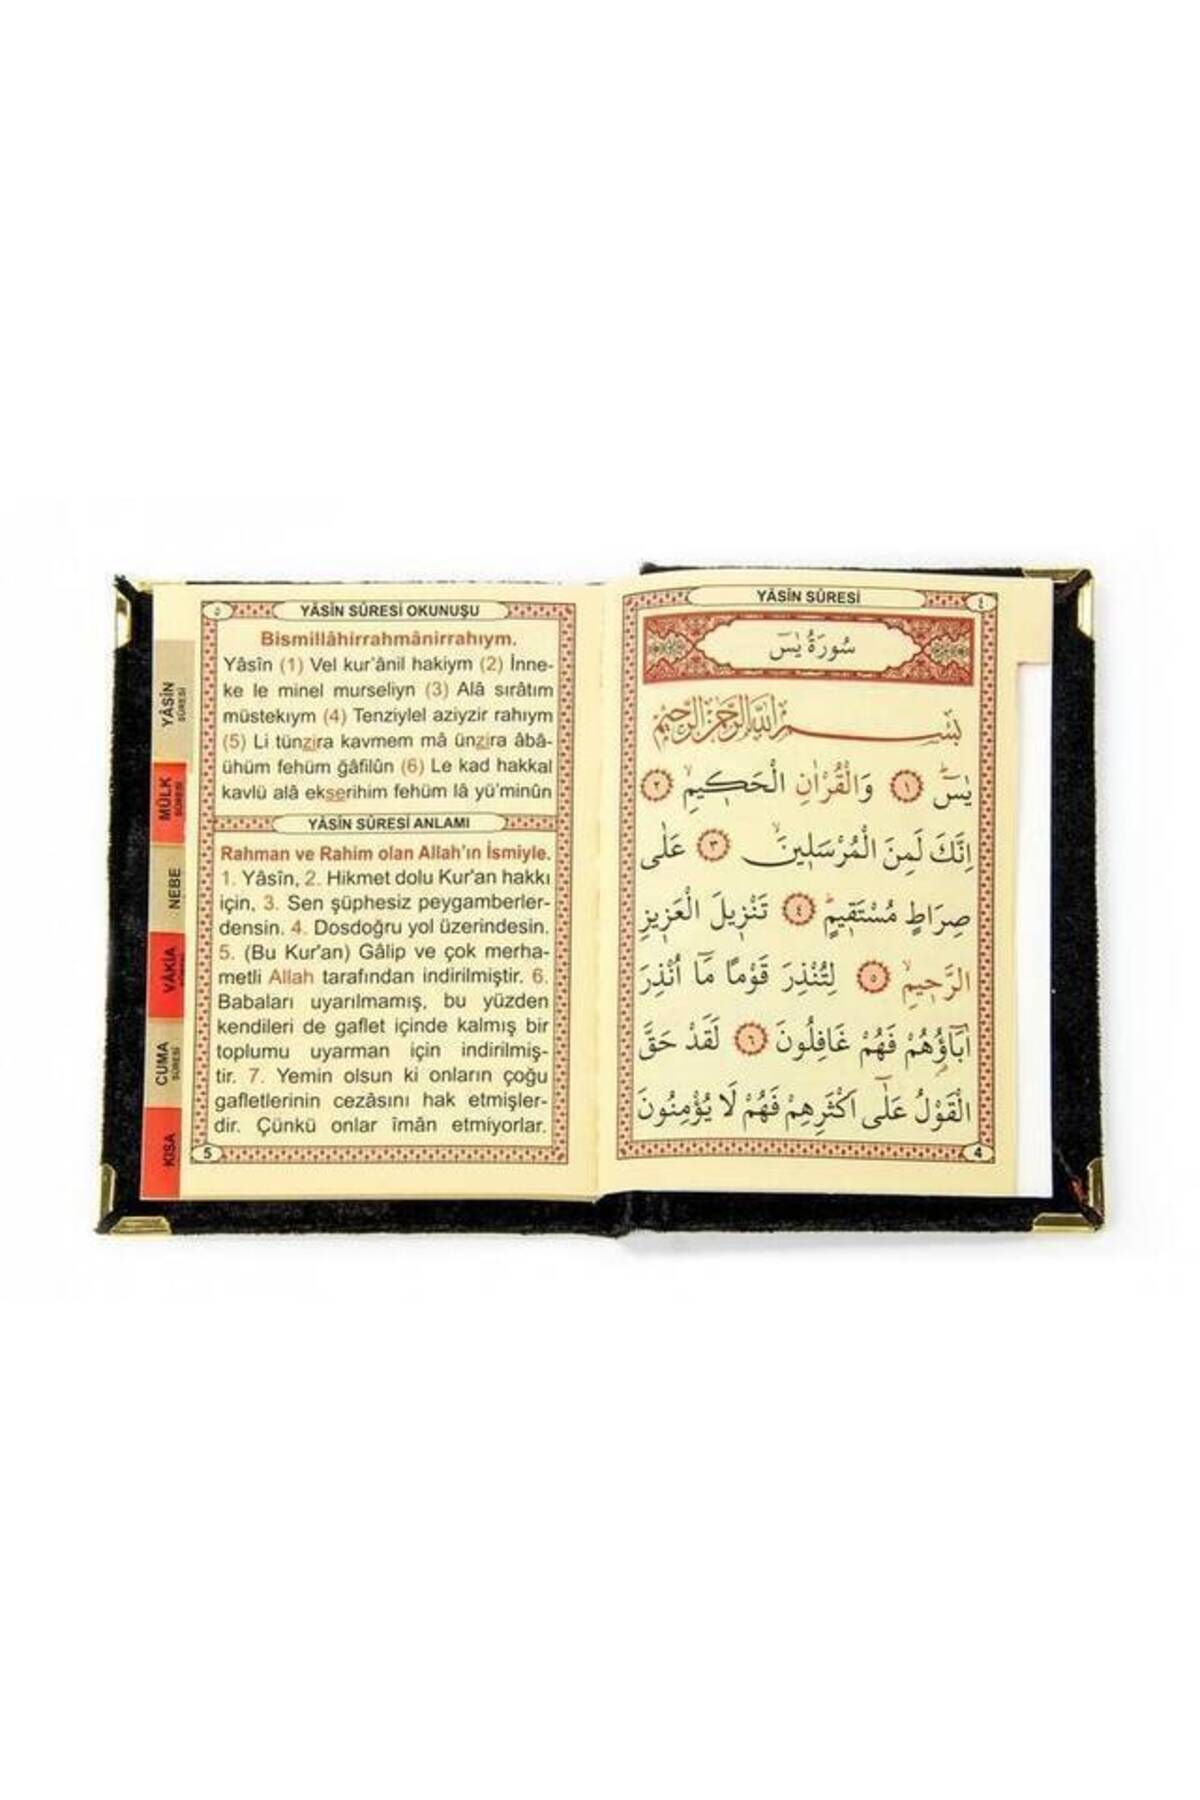 YÂSİN
SÛRESİ
MÜLK
SÛRESİ
NEBE
VÂKIA
CUMA
SÛRESİ
KISA
٥
YÂSÎN SÛRESİ OKUNUŞU
Bismillâhirrahmânirrahıym.
Yâsîn (1) Vel kur'ânil hakiym (2) İnne-
ke le minel murseliyn (3) Alâ sırâtım
müstekıym (4) Tenziylel aziyzir rahıym
(5) Li tünzira kavmem mâ ünzira âbâ-
ühüm fehüm ğâfilûn (6) Le kad hakkal
kavlü alâ ekserihim fehüm lâ yü'minûn
YÂSÎN SÛRESİ ANLAMI
Rahman ve Rahim olan Allah'ın İsmiyle.
1. Yâsîn, 2. Hikmet dolu Kur'an hakkı
için, 3. Sen şüphesiz peygamberler-
densin. 4. Dosdoğru yol üzerindesin.
5. (Bu Kur'an) Gâlip ve çok merha-
metli Allah tarafından indirilmiştir. 6.
Babaları uyarılmamış, bu yüzden
kendileri de gaflet içinde kalmış bir
toplumu uyarman için indirilmiş-
tir. 7. Yemin olsun ki onların çoğu
gafletlerinin cezâsını hak etmişler-
dir. Çünkü onlar îmân etmiyorlar.
5
YÂSÎN SÛRESİ
٤
سُورَةُ يٰسٓ
بِسْمِ اللّٰهِ الرَّحْمٰنِ الرَّحِيمِ
يٰسٓ ۚ ﴿١﴾ وَالْقُرْاٰنِ الْحَكِيمِ ۙ ﴿٢﴾
اِنَّكَ لَمِنَ الْمُرْسَلِينَ ۙ ﴿٣﴾ عَلٰى
صِرَاطٍ مُسْتَقِيمٍ ۜ ﴿٤﴾ تَنْزِيلَ الْعَزِيزِ
الرَّحِيمِ ۙ ﴿٥﴾ لِتُنْذِرَ قَوْمًا مَٓا اُنْذِرَ
اٰبَٓاؤُهُمْ فَهُمْ غَافِلُونَ ﴿٦﴾ لَقَدْ حَقَّ
الْقَوْلُ عَلٰٓى اَكْثَرِهِمْ فَهُمْ لَا يُؤْمِنُونَ
4